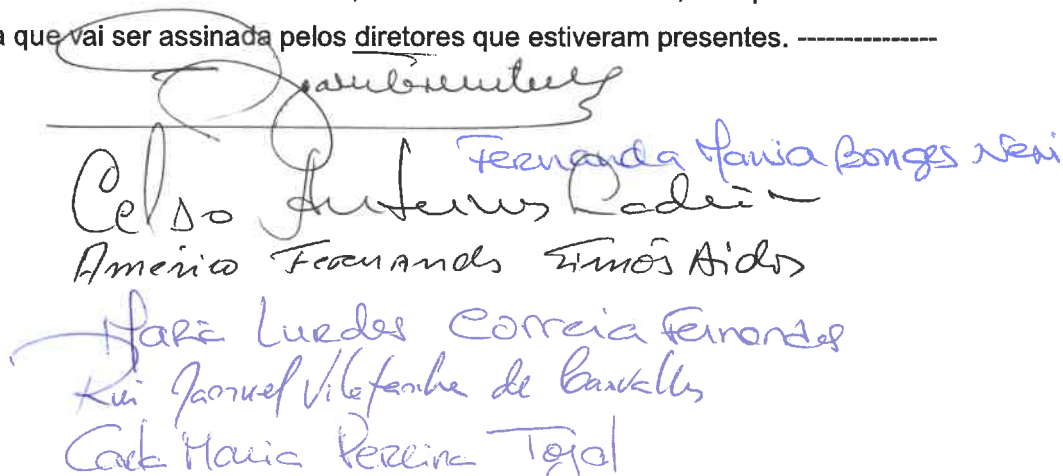 a que vai ser assinada pelos diretores que estiveram presentes. ---------------
Fernanda Maria Borges Neri
Celso António
Américo Fernando Simões Aidos
Maria Lurdes Correia Fernandes
Rui Manuel de Carvalho
Carla Maria Pereira Tojal